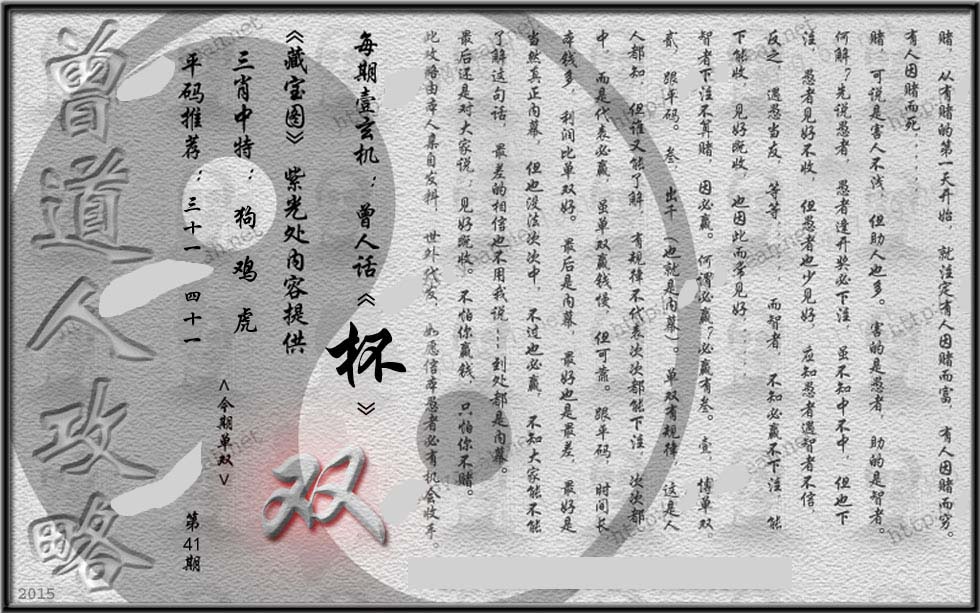 赌，从有赌的第一天开始，就注定有人因赌而富，有人因赌而穷。
有人因赌而死．．．．．．
赌，可说是害人不浅，但助人也多。害的是愚者，助的是智者。
何解？先说愚者，愚者逢开奖必下注，虽不知中不中，但也下
注，愚者见好不收，但愚者也少见好，应知愚者遇智者不信，
反之，遇愁当友，等等．．．．．．而智者，不知必赢不下注，能
下能收，见好既收，也因此而常见好．．．．．．
智者下注不算赌，因必赢。何谓必赢？必赢有叁。壹，博单双，
贰，跟平码。叁，出千（也就是内幕）。单双有规律，这是人
人都知，但谁又能了解，有规律不代表次次都能下注，次次都
中，而是代表必赢，虽单双赢钱慢，但可靠。跟平码，时间长，
本钱多，利润比单双好。最后是内幕，最好也是最差，最好是
当然真正内幕，但也没法次次中，不过也必赢，不知大家能不能
了解这句话，最差的相信也不用我说…到处都是内幕。
最后还是对大家说：见好既收。不怕你赢钱，只怕你不赌。
此攻略由本人集自发料，世外代友，如愿信本愚者必有机会收手。
每期壹玄机：曾人话《杯》
《藏宝图》紫光处内容提供
三肖中特：狗 鸡 虎
平码推荐：三十一 四十一
<今期单双>
双
第41期
曾道人攻略
2015